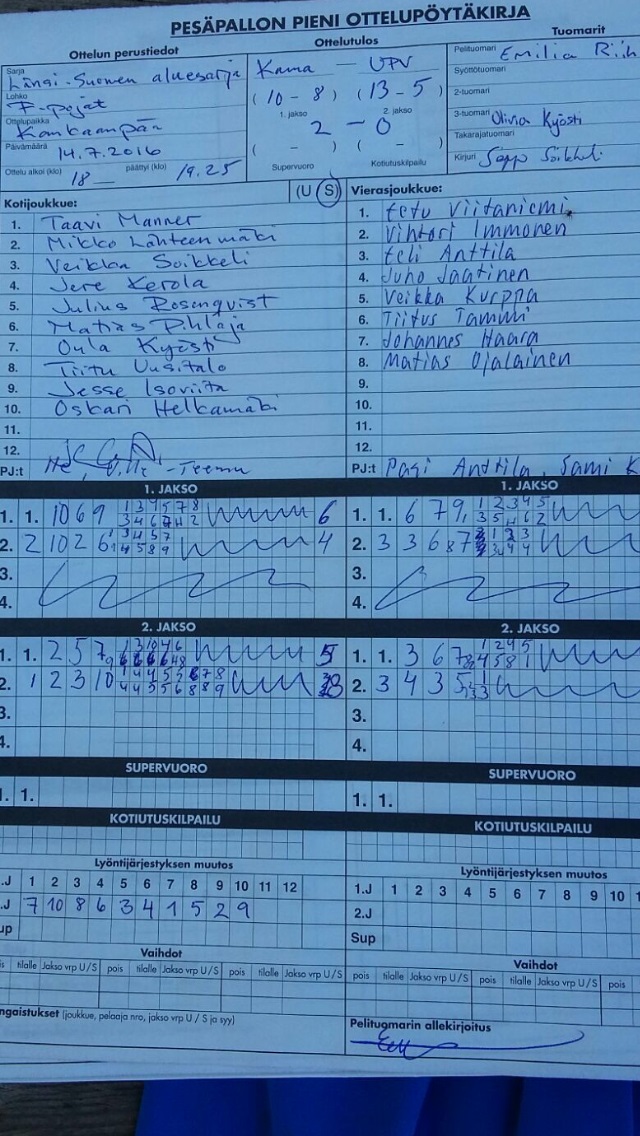 PESÄPALLON PIENI OTTELUPÖYTÄKIRJA
Ottelun perustiedot
Sarja
Länsi-Suomen aluesarja
Lohko
F-pojat
Ottelupaikka
Kankaanpää
Päivämäärä
14.7.2016
Ottelu alkoi (klo) 18 päättyi (klo) 19.25
Ottelutulos
Kama - UPV
(10 - 8) (13 - 5)
1. jakso 2. jakso
2 - 0
( - ) ( - )
Supervuoro Kotiutuskilpailu
Tuomarit
Pelituomari Emilia
Syöttötuomari
2-tuomari
3-tuomari Olivia Kyösti
Takarajatuomari
Kirjuri Seppo Soikkeli
Kotijoukkue: (U S)
1. Taavi Manner
2. Mikko Lähteenmäki
3. Veikka Soikkeli
4. Jere Kerola
5. Julius Rosenqvist
6. Matias Pihlaja
7. Oula Kyösti
8. Tiitu Uusitalo
9. Jesse Isoviita
10. Oskari Helkamäki
11.
12.
PJ:t - Teemu
Vierasjoukkue:
1. Eetu Viitaniemi
2. Vihtori Immonen
3. Eeli Anttila
4. Juho Jaatinen
5. Veikka Kurppa
6. Tiitus Tammi
7. Johannes Haara
8. Matias Ojalainen
9.
10.
11.
12.
PJ:t Pasi Anttila, Sami K
1. JAKSO
1. 1. 10 6 9 6
2. 2 10 2 6 4
3.
4.
1. JAKSO
1. 1. 6 7 9
2. 3 3 6 8 7
3.
4.
2. JAKSO
1. 1. 2 5 7 9 5
2. 1 2 3 10
3.
4.
2. JAKSO
1. 1. 3 6 7
2. 3 4 3 5
3.
4.
SUPERVUORO
1. 1.
SUPERVUORO
1. 1.
KOTIUTUSKILPAILU
KOTIUTUSKILPAILU
Lyöntijärjestyksen muutos
.J 1 2 3 4 5 6 7 8 9 10 11 12
.J 7 10 8 6 3 4 1 5 2 9
up
Lyöntijärjestyksen muutos
1.J 1 2 3 4 5 6 7 8 9 10
2.J
Sup
Vaihdot
is tilalle Jakso vrp U/S pois tilalle Jakso vrp U/S pois tilalle Jakso vrp U/S
Vaihdot
pois tilalle Jakso vrp U/S pois tilalle Jakso vrp U/S pois
ngaistukset (joukkue, pelaaja nro, jakso vrp U / S ja syy)
Pelituomarin allekirjoitus